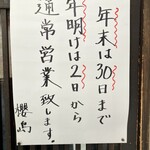 年末は30日まで
年明けは2日から
通常営業致します。
櫻嶋